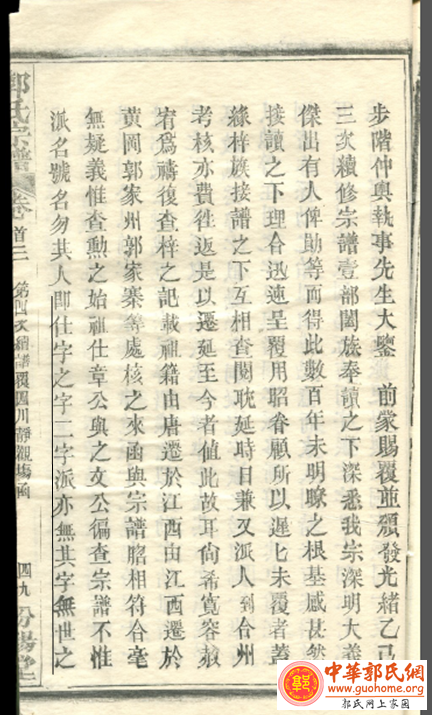 步階仲輿執事先生大鑒 前蒙賜覆並頒發光緒乙巳
三次續修宗譜壹部闔族奉讀之下深悉我宗深明大義
傑出有人俾勛等而得此數百年未明瞭之根基感甚然
接讀之下理合迅速呈覆用昭眷顧所以遲匕未覆者蓋
緣梓族接譜之下互相查閱耽延時日兼又派人到台州
考核亦費徃返是以遷延至今者值此故耳尙希寬容敝
宥為禱復查梓之記載祖籍由唐遷於江西由江西遷於
黃岡郭家州郭家寨等處核之來函與宗譜脗相符合毫
無疑義惟查勳之始祖仕章公與之文公徧查宗譜不惟
派名號名勿其人即仕字之字二字派亦無其字無世之
郭氏宗譜 卷首三 第四次續譜覆四川靜觀塲函 四九 汾陽堂
中華郭氏網
www.guohome.org
郭氏网上家园